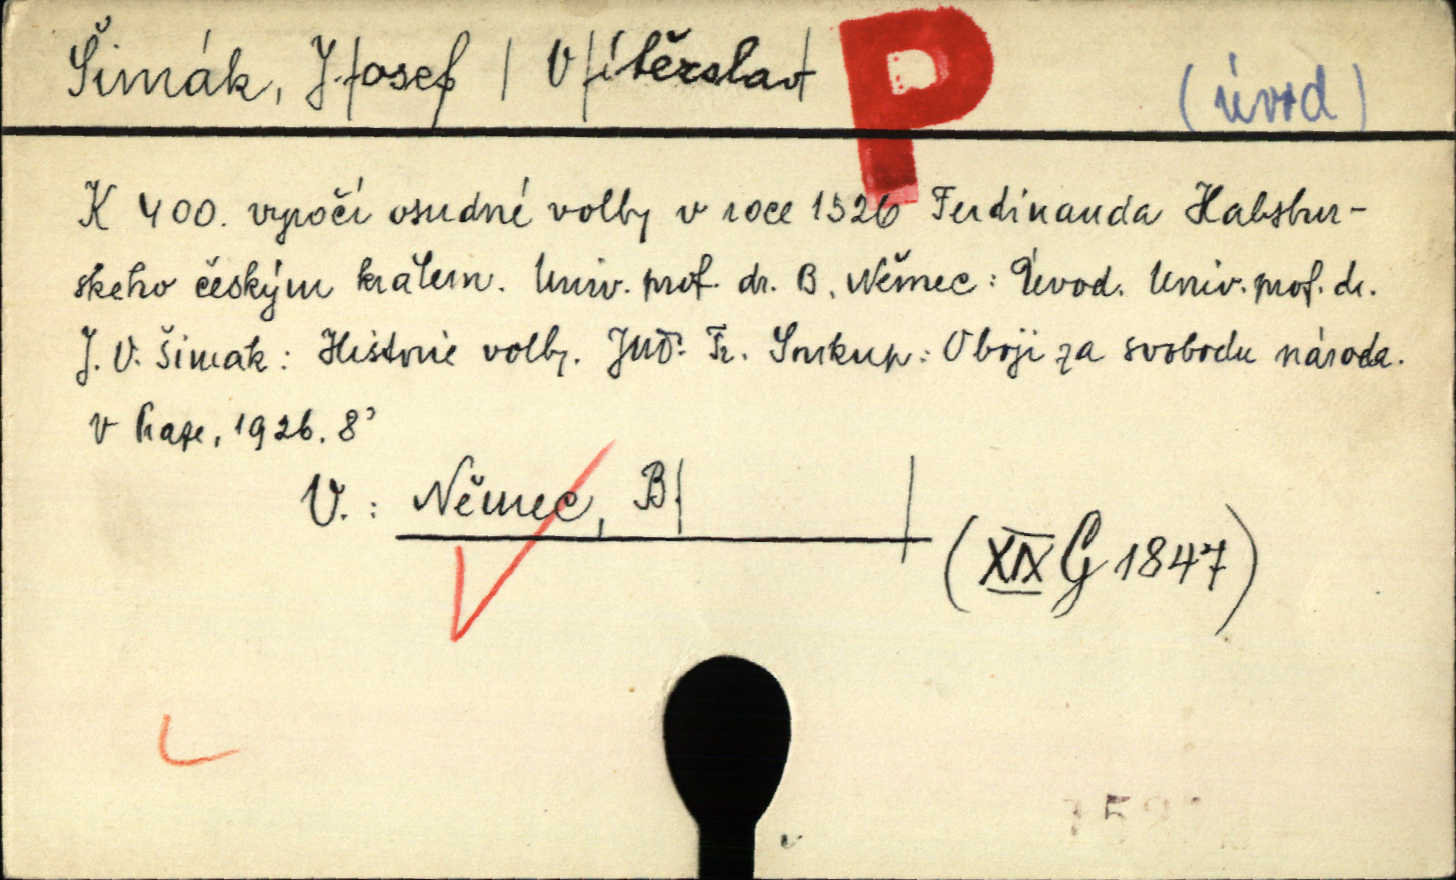 Šimák, J./osef/ V/ítězslav/
P
(úvod)
K 400. výročí osudné volby v roce 1526 Ferdinanda Habsbur-
skeho českým králem. Univ. prof. dr. B. Němec: Úvod. Univ. prof. dr.
J. V. Šimak: Historie volby. JUD: Fr. Soukup: O boji za svobodu národa.
V Praze, 1926. 8°
V.: Němec, B/
(XIX G 1847)